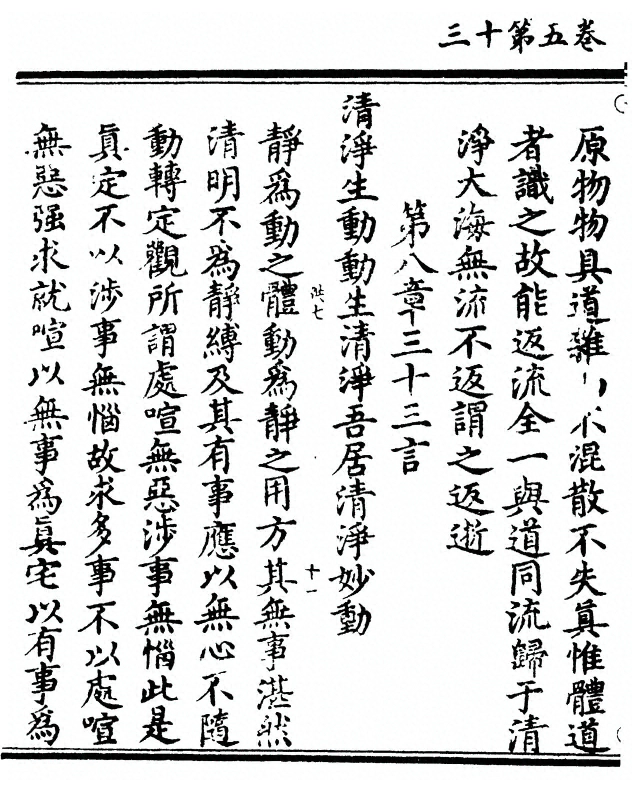 三十第五卷
原物物具道雜不混散不失眞惟體道
者識之故能返流全一與道同流歸于清
淨大海無流不返謂之返逝
第八章十三十三言
清淨生動動生清淨吾居清淨妙動
靜爲動之體動爲靜之用方其無事湛然
洪七
十一
清明不爲靜縛及其有事應以無心不隨
動轉定觀所謂處喧無惡涉事無惱此是
眞定不以涉事無惱故求多事不以處喧
無惡强求就喧以無事爲眞宅以有事爲